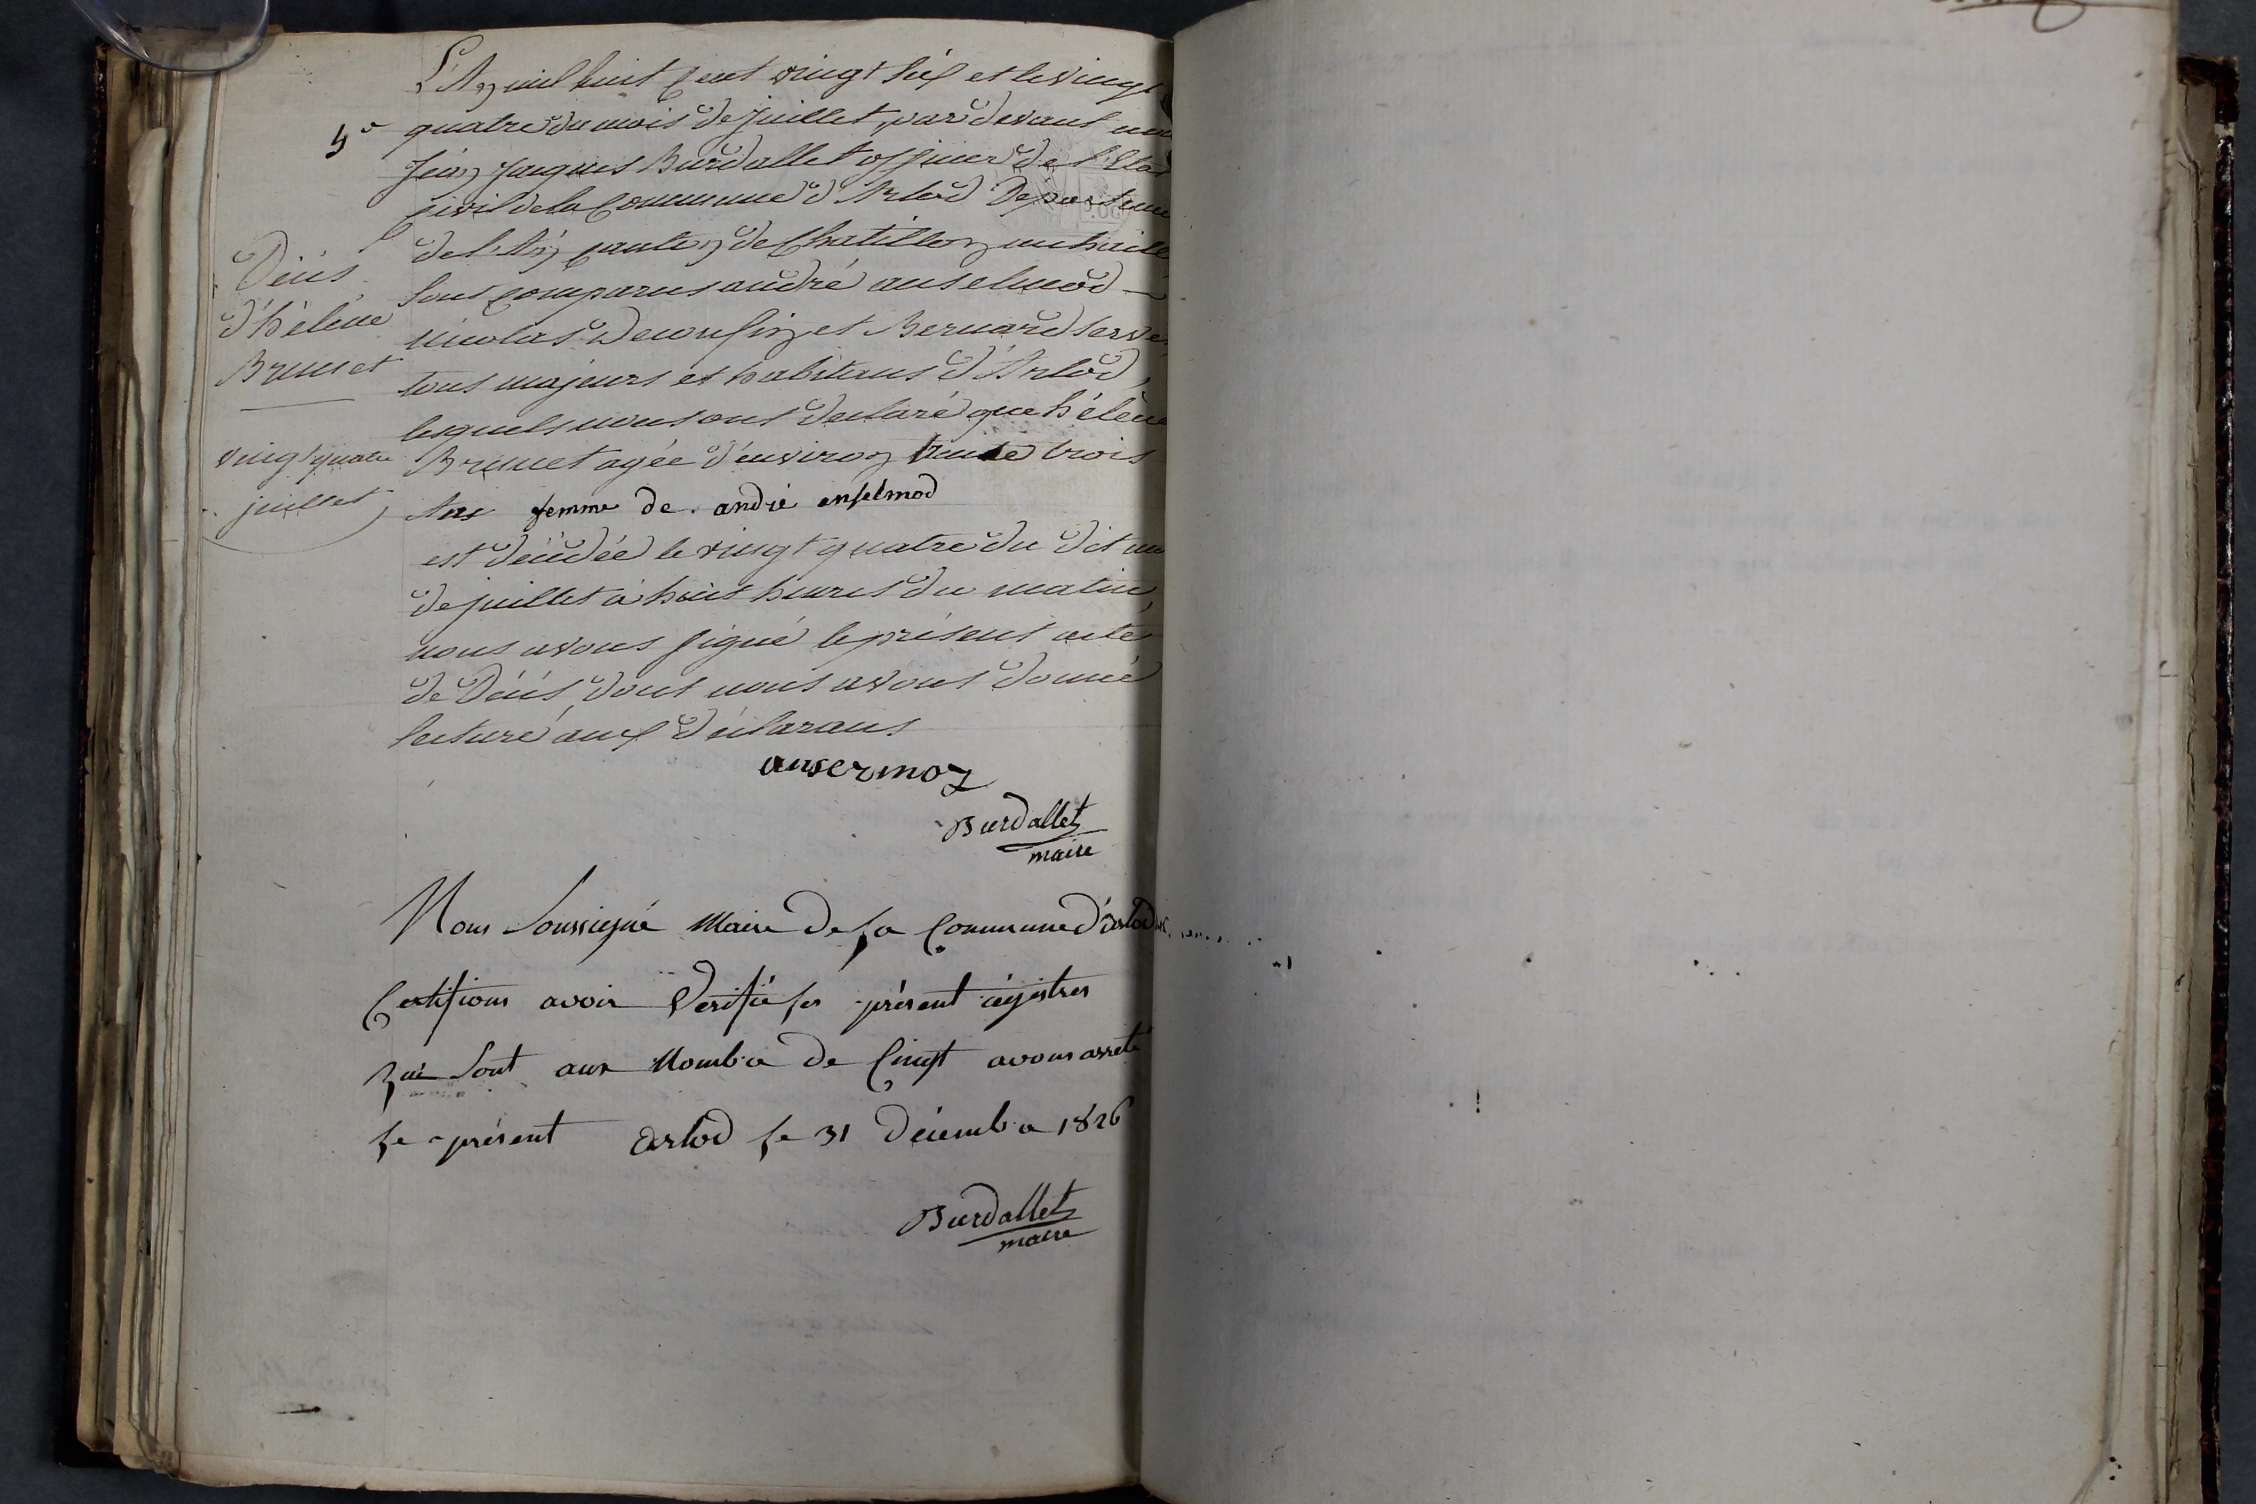 L'An mil huit cent vingt six et le vingt
5e
quatre du mois de juillet, par devant nous
Jean Jacques Burdallet officier de l'Etat
civil de la commune d'Arlod Departeme
de l'Ain canton de Chatillon michaille
sont comparus andré anselmod
nicolas et Bernard
tous majeurs et habitans d'Arlod,
lesquels nous ont declaré que héléne
Brunet agée d'environ trente trois
Ans femme de andré anselmod
est décédée le vingt quatre du dit
de juillet à huit heures du matin,
nous avons signé le présent acte
de Décés, dont nous avons donné
lecture aux déclarans
Décés
d'hélène
Brunet
vingt quatre
juillet
ansermoz
Burdallet
maire
Nous Soussigné Maire de la Commune d'arlod
Certifions avoir Verifié les présent régistres
qui sont aux Nombre de Cinqt avons arreté
le présent arlod le 31 décembre 1826
Burdallet
maire